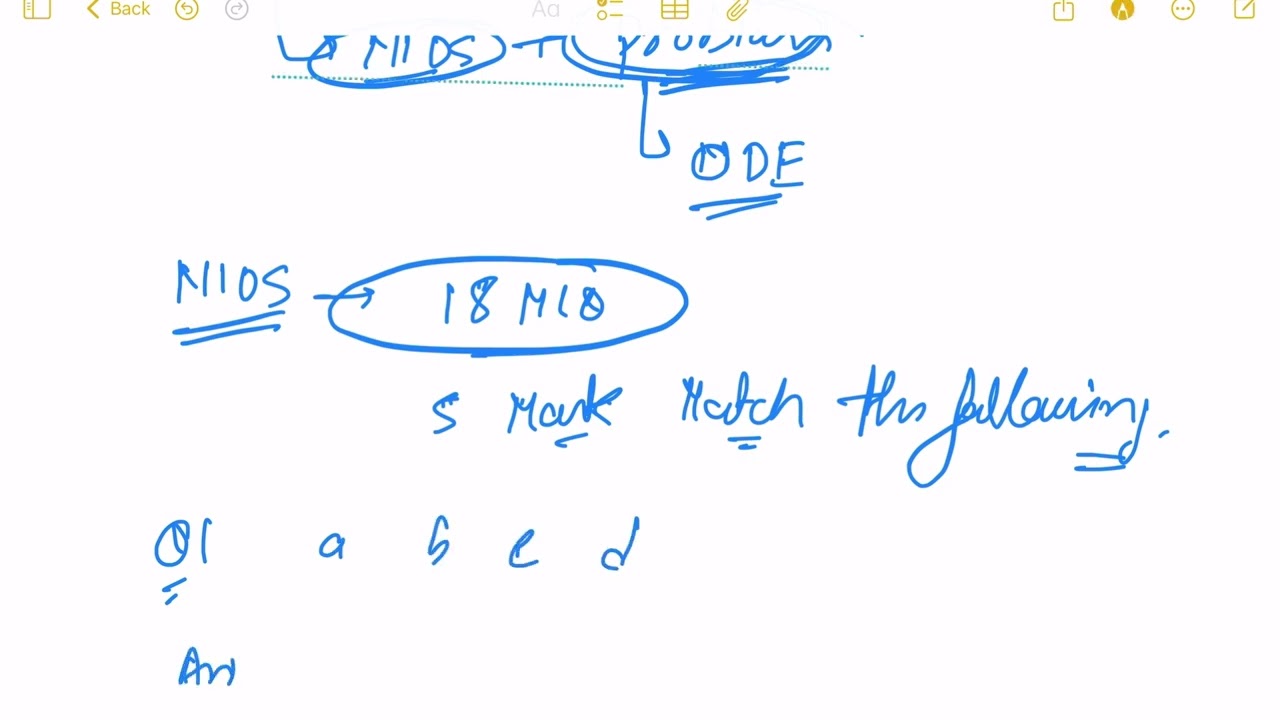 Back Aa
NIOS +
ODE
NIOS → 18 MCQ
5 Mark Match the following.
Q1 a b c d
An